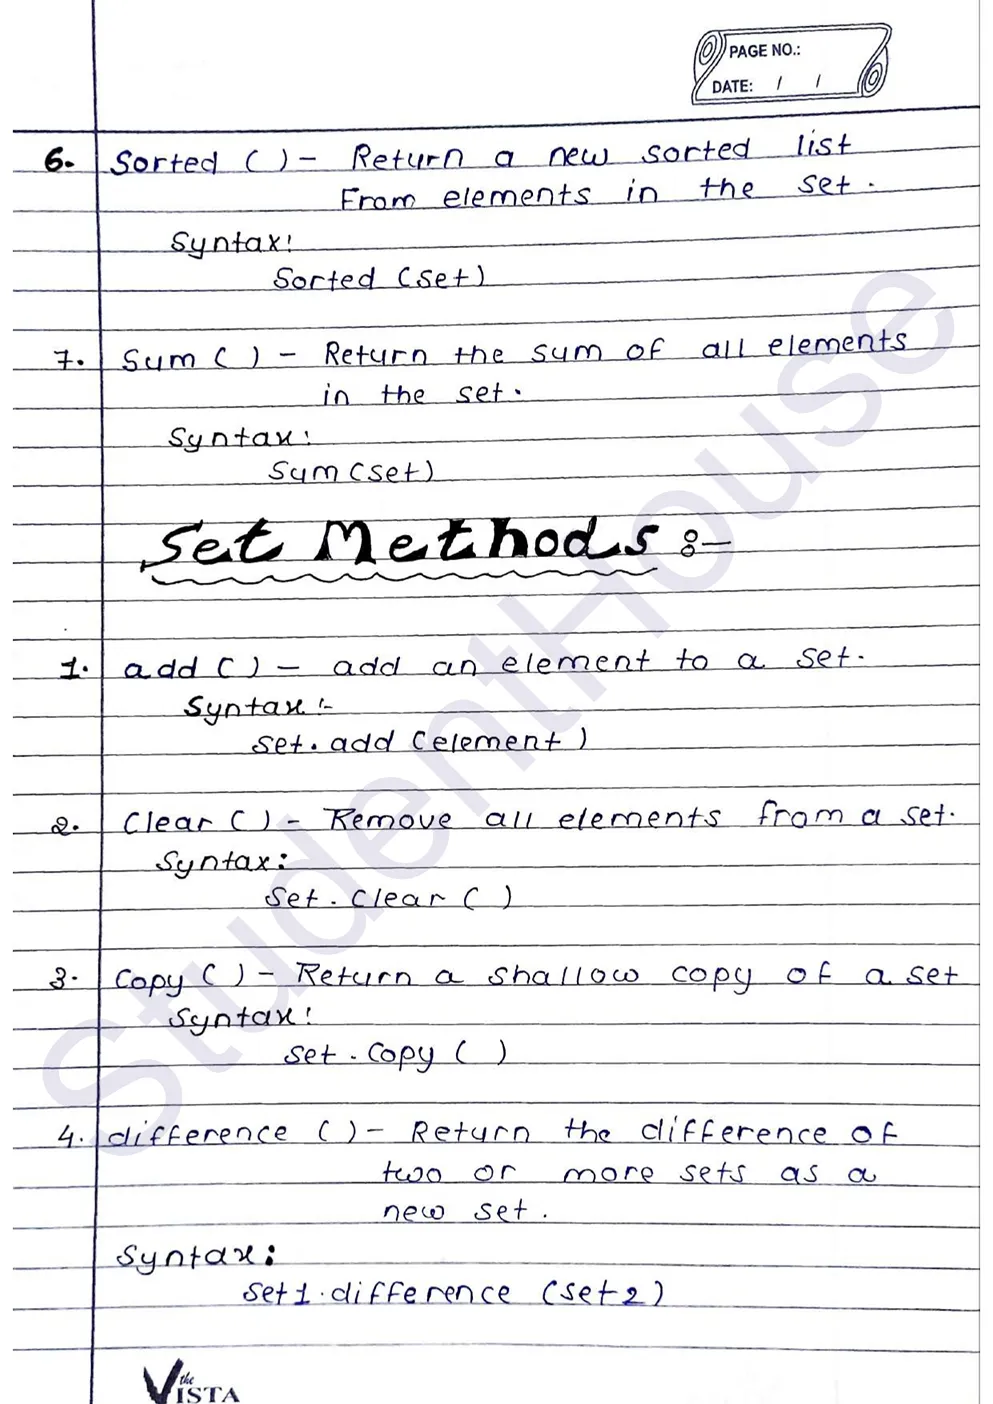 PAGE NO.:
DATE: / /
6. Sorted ( ) - Return a new sorted list
From elements in the set.
Syntax:
Sorted (set)
7. Sum ( ) - Return the sum of all elements
in the set.
Syntax:
Sum (set)
Set Methods :-
1. add ( ) - add an element to a set.
Syntax :-
set. add (element)
2. Clear ( ) - Remove all elements from a set.
Syntax:
Set. Clear ( )
3. Copy ( ) - Return a shallow copy of a set
Syntax:
Set. Copy ( )
4. difference ( ) - Return the difference of
two or more sets as a
new set.
Syntax:
Set1.difference (set2)
StudentHouse
the
VISTA